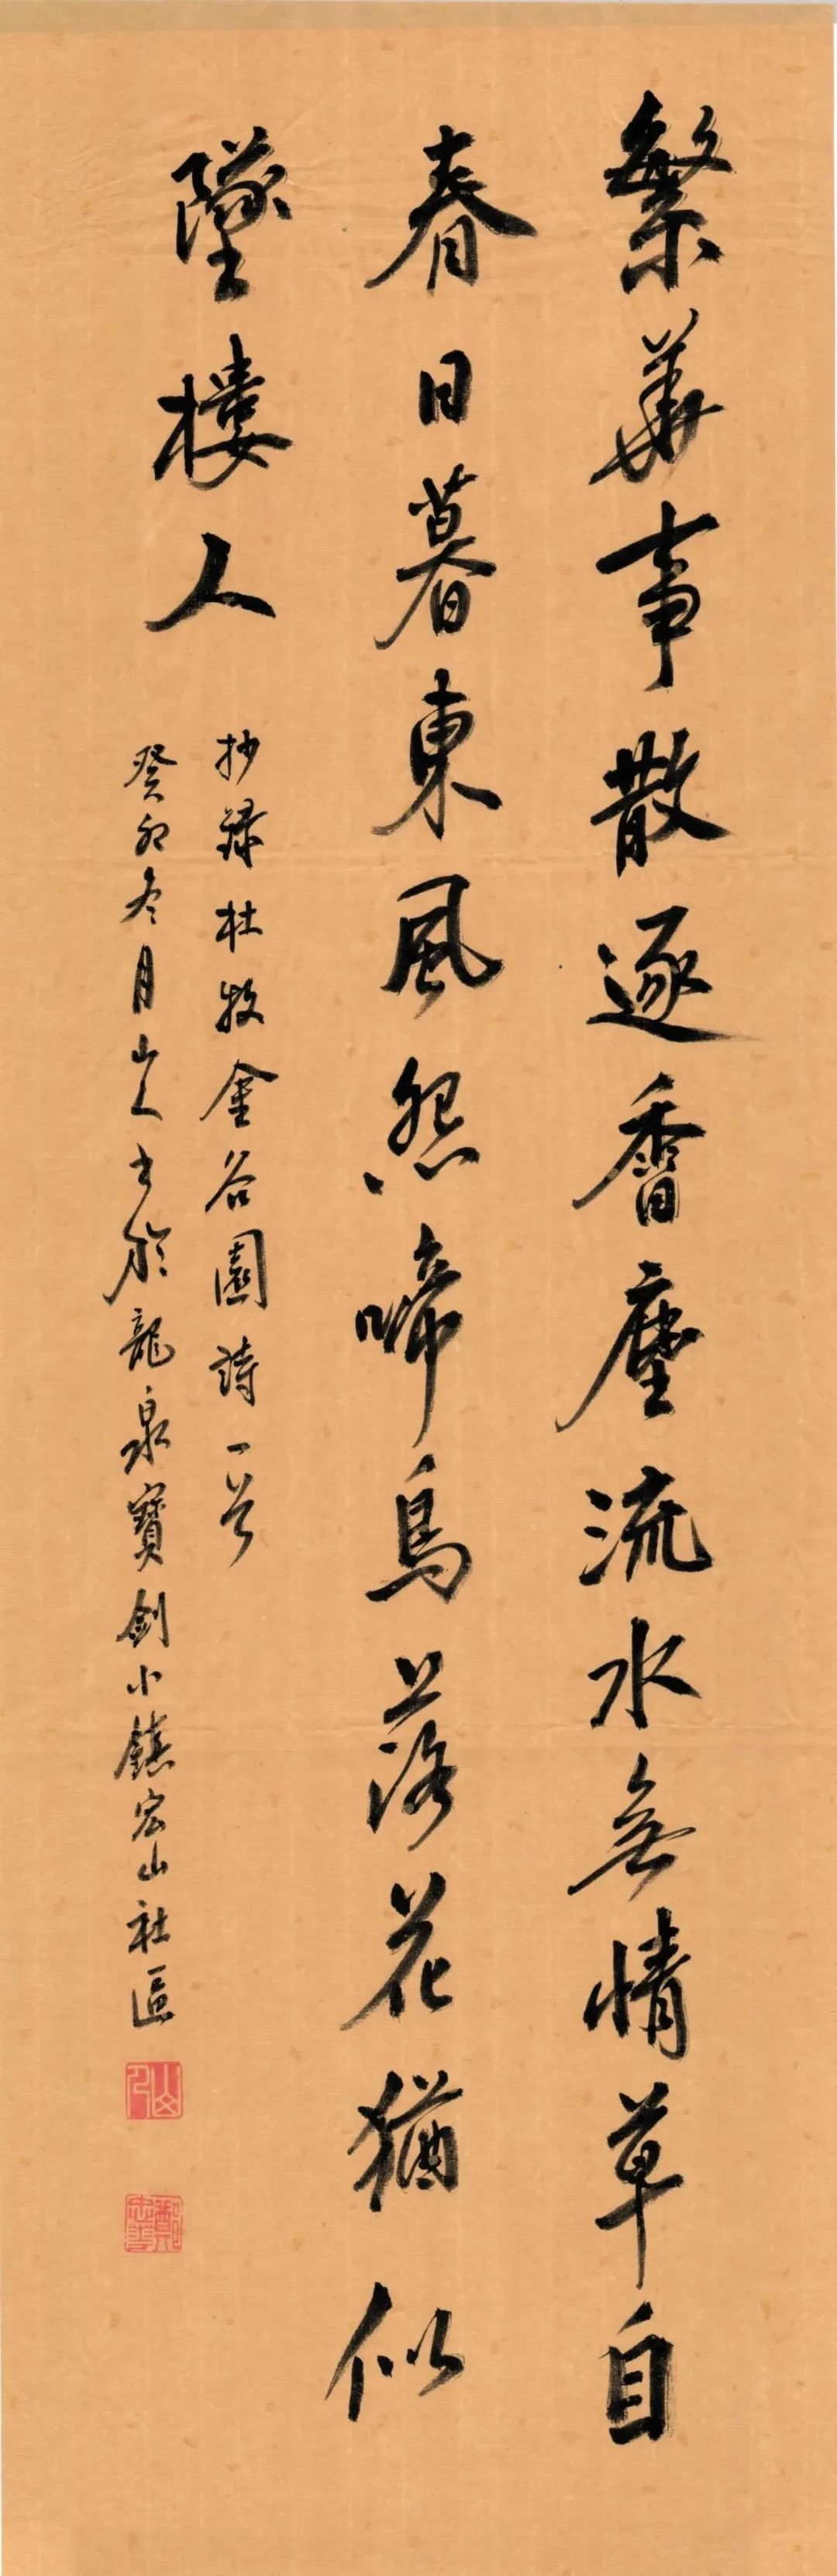 繁華事散逐香塵流水無情草自
春日暮東風怨啼鳥落花猶似
墜樓人
抄錄杜牧金谷園詩一首
癸卯冬月山人書於龍泉寶劍小鎮宏山社區
山人